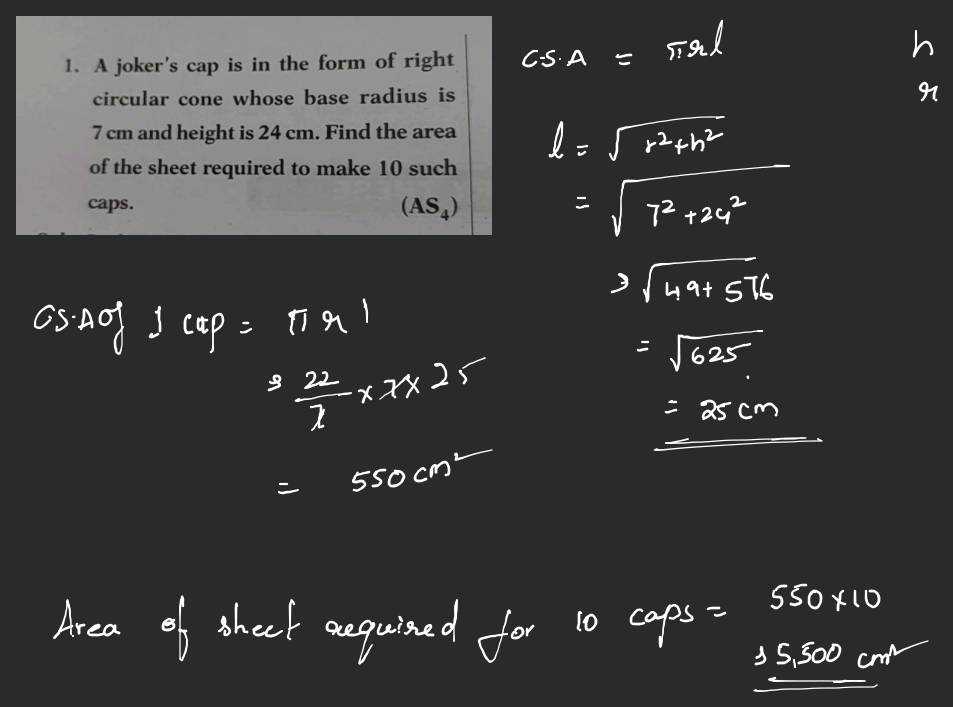 1. A joker's cap is in the form of right
circular cone whose base radius is
7 cm and height is 24 cm. Find the area
of the sheet required to make 10 such
caps. (AS₄)
C.S.A = πrl
h
r
l = √r²+h²
= √7²+24²
= √49+576
= √625
= 25 cm
CS.A of 1 cap = πrl
= 22/7 × 7 × 25
= 550 cm²
Area of sheet required for 10 caps = 550 × 10
= 5,500 cm²